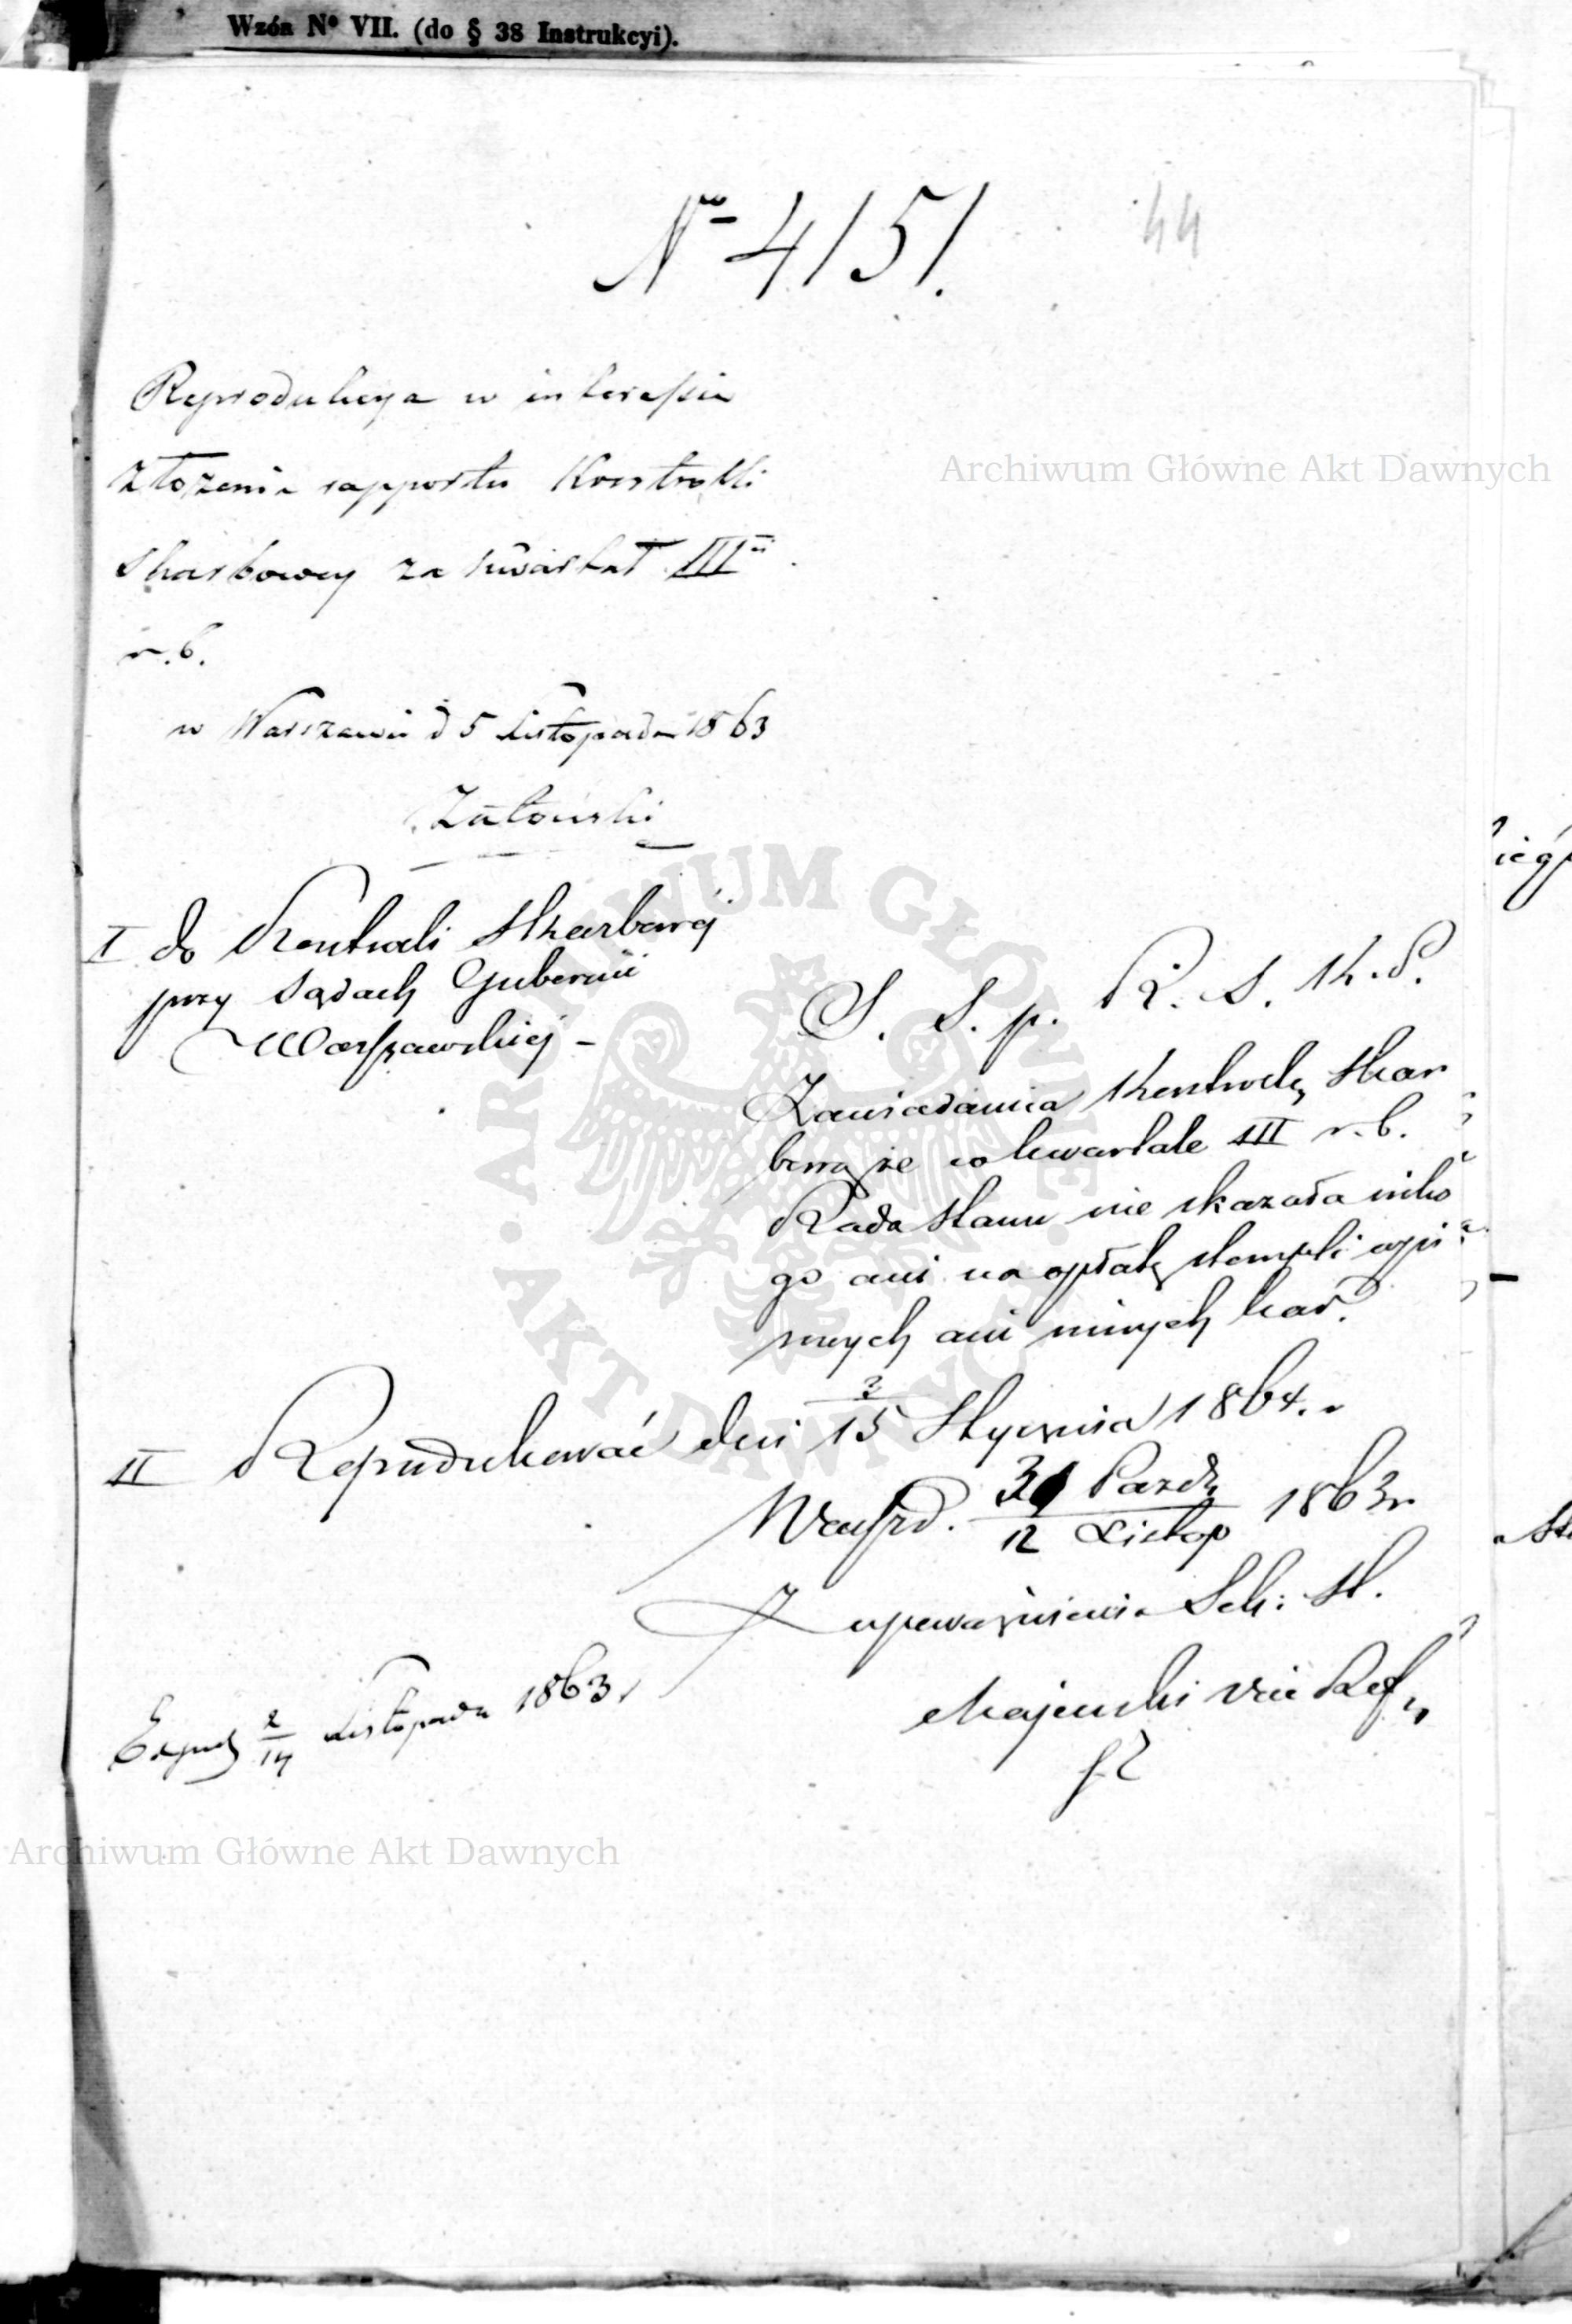 Wzór Nº VII. (do § 38 Instrukcyi).
Nº 4151.
44
Reprodukcya w interessie
złożenia rapportu Kontrolli
Skarbowey za kwartał III
r. b.
w Warszawie d 5 Listopada 1863
I do Kontroli Skarbowej
przy Sądach Gubernii
Warszawskiej -
S. S. p. R. S. K. P.
Zawiadamia Kontrolę Skar
bową że w kwartale III r. b.
Rada Stanu nie skazała niko
go ani na opłatę stempli wpi
sowych ani innych kar.
II Reprodukować dni 3/15 Stycznia 1864. r
Warsz d. 31 Paźdz / 12 Listop 1863 r
Z upoważnienia Sek: St.
Majewski Vice Ref
Exped 2/14 Listopada 1863 r
Archiwum Główne Akt Dawnych
Archiwum Główne Akt Dawnych
ARCHIWUM GŁÓWNE
AKT DAWNYCH